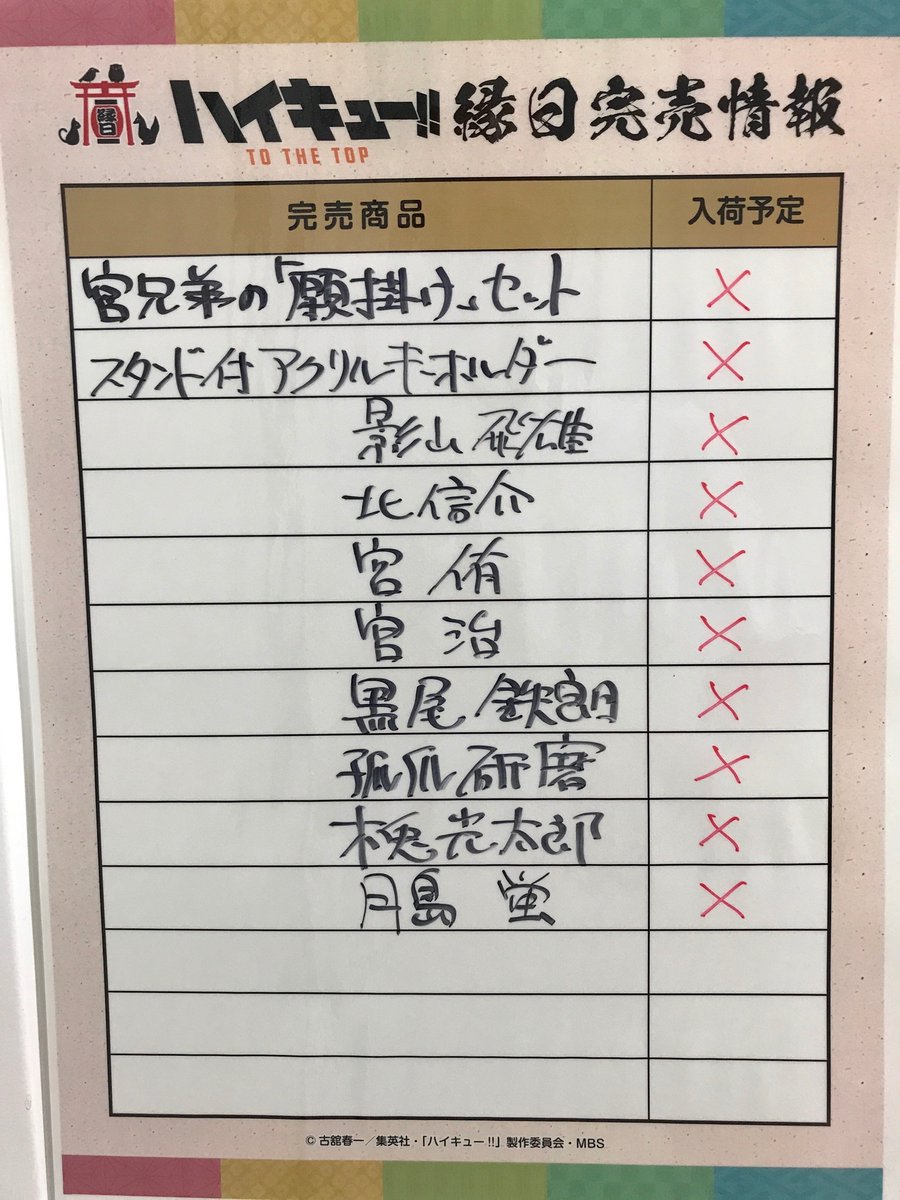 縁日
ハイキュー!! 縁日完売情報
TO THE TOP
完売商品 入荷予定
宮兄弟の「願掛け」セット ×
スタンド付アクリルキーホルダー ×
影山 飛雄 ×
北信介 ×
宮 侑 ×
宮 治 ×
黒尾 鉄朗 ×
孤爪研磨 ×
木兎光太郎 ×
月島 蛍 ×
© 古舘春一／集英社・「ハイキュー!!」製作委員会・MBS